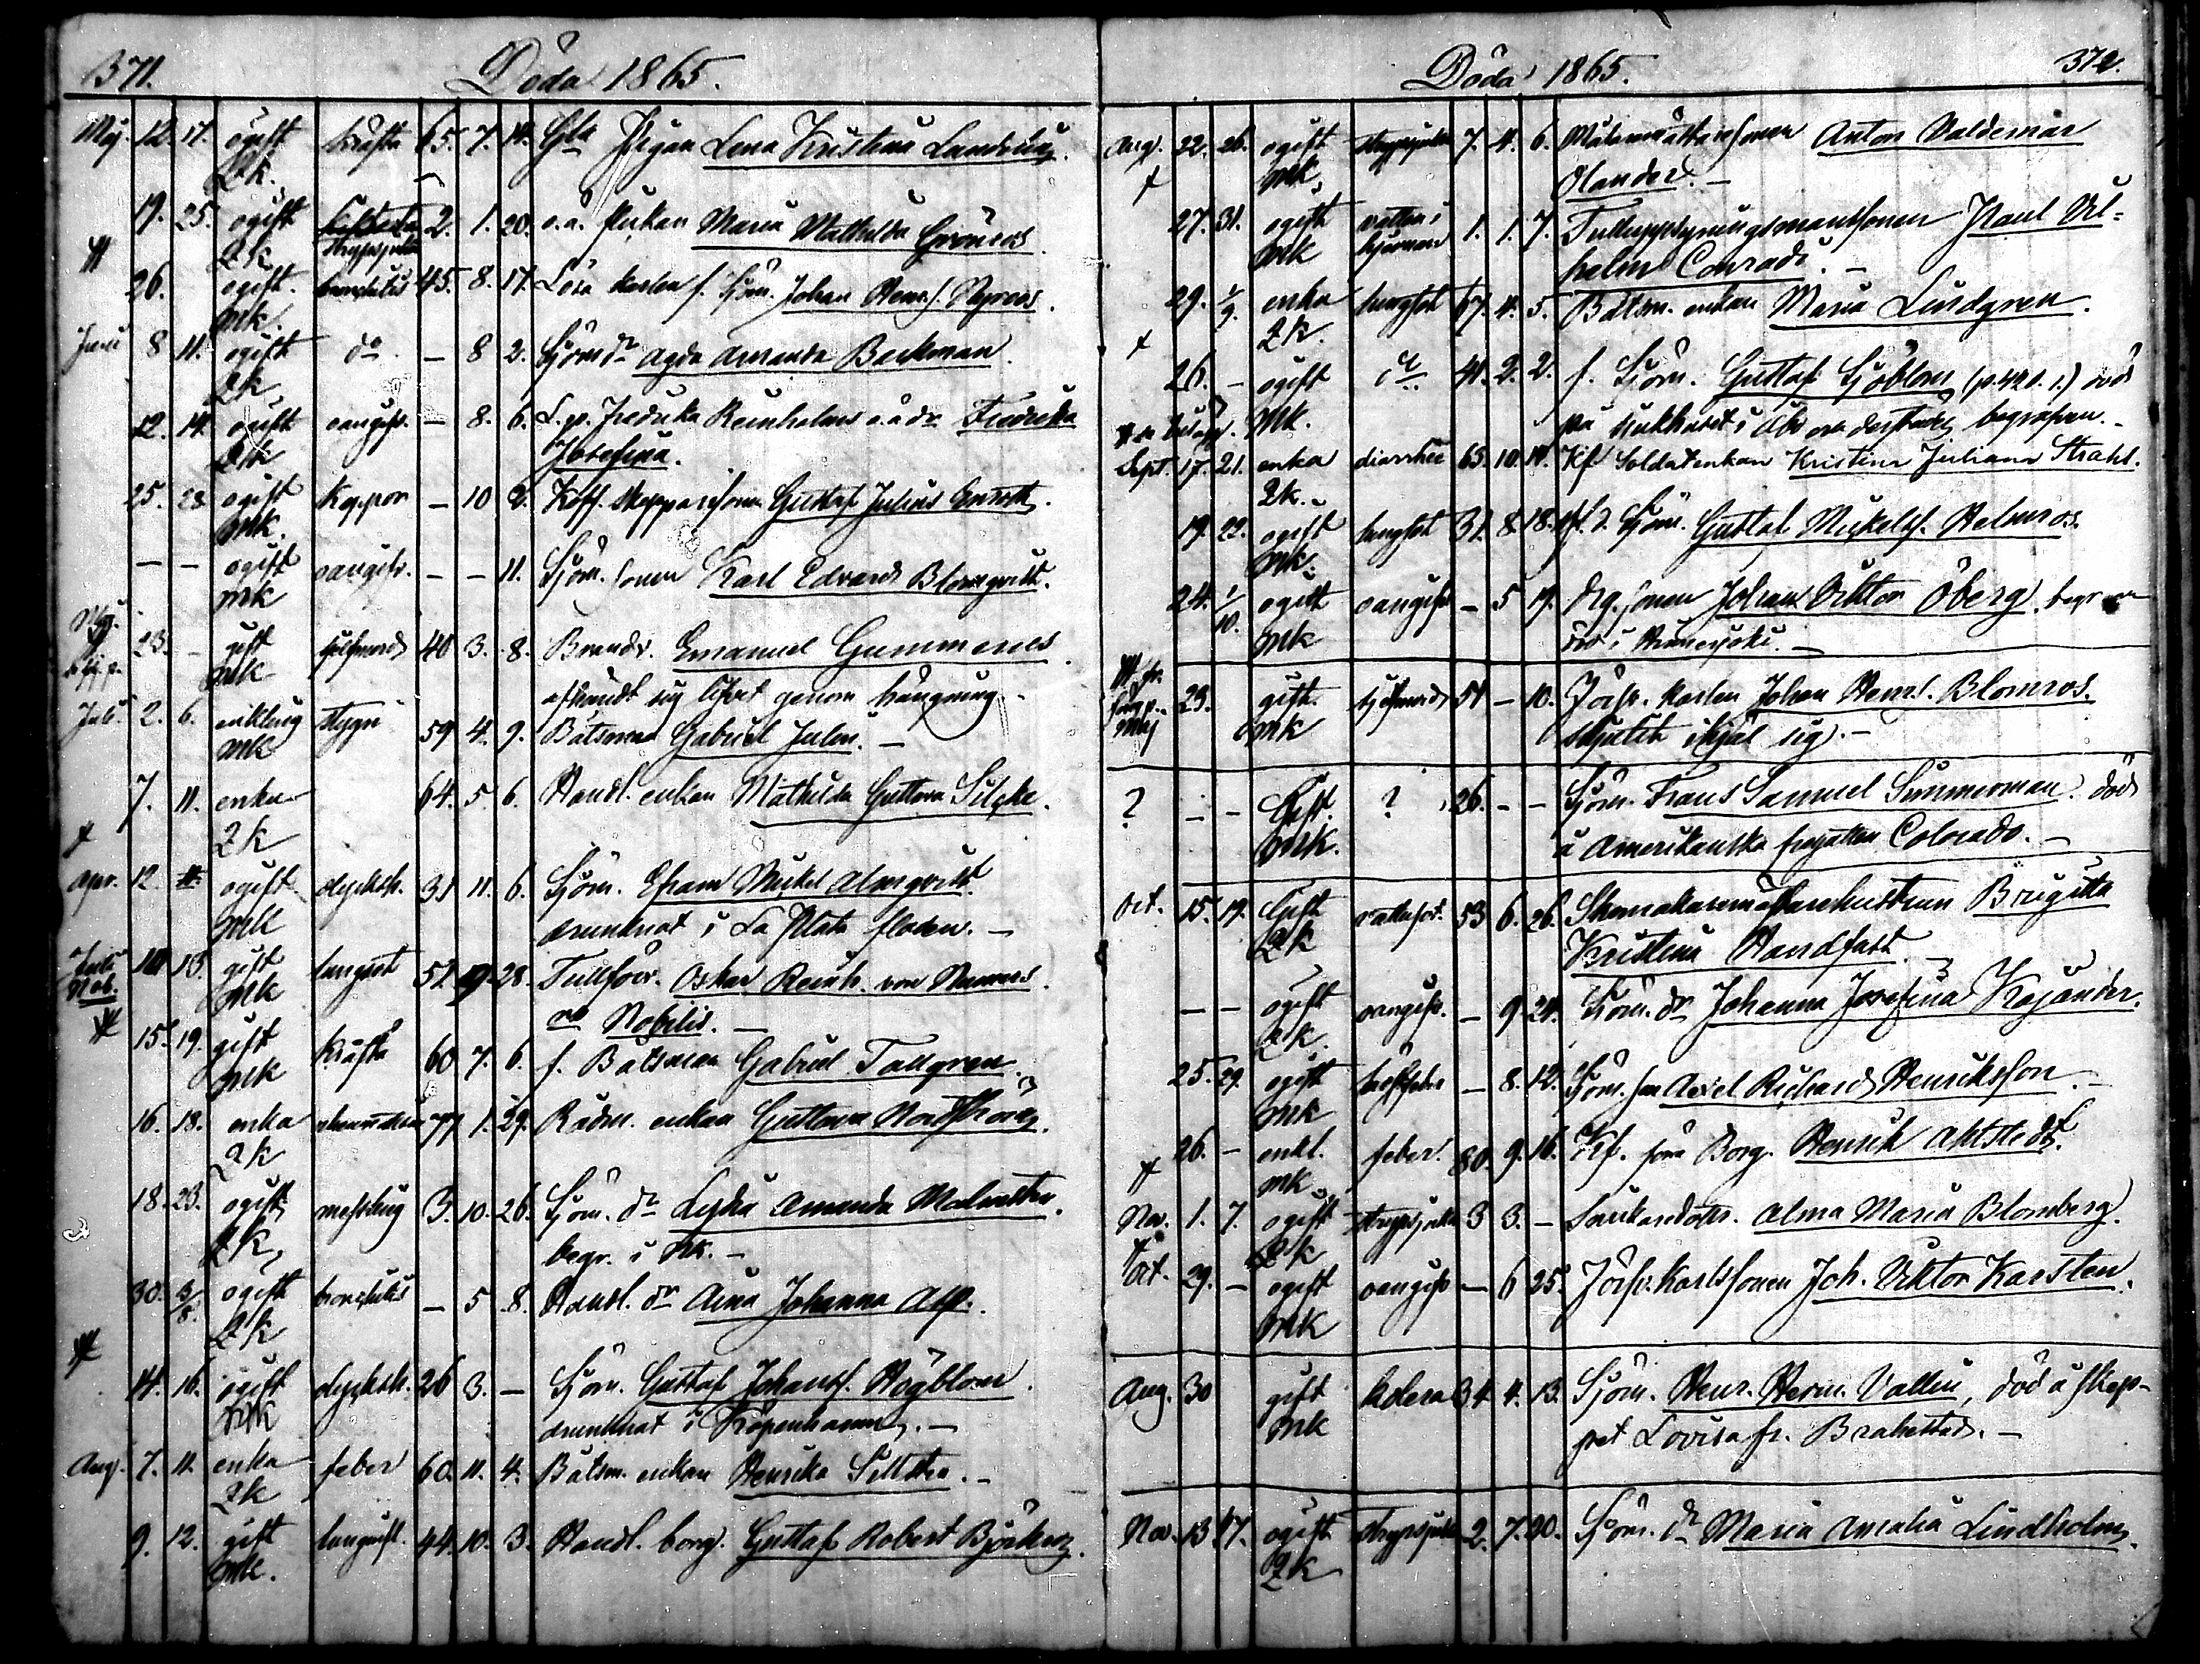 371.
Döda 1865.
Maj. 12. 17. ogift kräfta 65. 7. 14. Gla Pigan Lena Kristina Lundvig.
2k.
19. 25. ogift 2. 1. 20. o.ä. flickan Maria Mathilda Grönros
2k strypsjuka
26. ogift. bronchitis 45. 8. 17. Lösa karlen f. Sjöm. Johan Henr. Nyroos.
mk.
Juni 8 11. ogift do. — 8 2. Sjöm dr Agda Amanda Beckman.
2k
12. 14. ogift oangifv. — 8. 6. L. p. Fredrika Reinholms o.ä dr Fredrika
2k Josefina.
25. 28 ogift Koppor — 10 2. Koff. skepparsonen Gustaf Julius Enroth.
mk.
— — ogift oangifv. — — 11. Sjöm. sonen Karl Edvard Blomqvist.
mk
Maj. 23. — gift sjelfmord 40 3. 8. Brandv. Emanuel Gummerus
mk afhändt sig lifvet genom hängning. -
Juli. 2. 6. enkling Hygn 59 4. 9. Båtsman Gabriel Julin. —
mk
7. 11. enka 64. 5 6. Handl. enkan Mathilda Gustava Silcke.
2k
Apr. 12. ogift drucksk. 31 11. 6. Sjöm. Efraim Mickel Almqvist.
mk drunknat i La Plata floden. —
Juli 10 13. gift lungsot 51. 9. 28. Tullförv. Oskar Reinh. von
Nob. mk Nobilis. —
15. 19. gift kräfta 60 7. 6. f. Båtsman Gabriel Tallgren.
mk
16. 18. enka 77 1. 29. Rådm. enkan Gustava Nordström.
2k
18. 23. ogift messling 3. 10. 26. Sjöm. dr Lydia Amanda Malmsten.
2k begr. i Nk. —
30. 3/8. ogift bronchitis — 5. 8. Handl. dr Aina Johanna Alp.
2k
14. 16. ogift drucksk. 26 3. — Sjöm. Gustaf Johansf. Högblom.
mk drunknat i Köpenhamn. —
Aug. 7. 11. enka feber 60. 11. 4. Båtsm. enkan Henrika Sillsten. -
2k
9. 12. gift lungsot. 44. 10. 3. Handl. borg. Gustaf Robert Björkroz.
mk.
Döda 1865.
372.
Aug. 22. 26. ogift strypsjuka 7. 4. 6. Målaremästaresonen Anton Valdemar
mk Olander. —
27. 31. ogift vatten i 1. 1. 7. Tulluppsyningsmansonen Paul Vil-
mk hjernan helm Conradi. —
29. 1/9. enka lungsot 67. 4. 5. Båtsm. enkan Maria Lindgren.
2k.
26. — ogift do. 41. 2. 2. f. Sjöm. Gustaf Sjöblom (p. 421. 1.) död
mk. på sjukhuset i Åbo och derstädes begrafven. -
Sept. 17. 21. enka diarrhée 65. 10. 14. Kf. Soldatenkan Kristina Juliana Strahl.
2k.
19. 22. ogift lungsot 31. 8. 18. Sjöm. Gustaf Mickelsf. Helenros.
mk.
24. 1/10. ogift oangifvet — 5 19. Arb. sonen Johan Viktor Öberg, begr.
mk
Maj 23. gift. sjelfmord 51 — 10. Jordfr. karlen Johan Henrs. Blomros.
mk skjutit ihjäl sig. -
? — — Gift. ? 26. — — Sjöm. Frans Samuel Simmerman. död
mk. å Amerikanska fregatten Colorado. —
Oct. 15. 19. Gift vattusot. 53 6. 26. Skomakaremästarehustrun Brigitta
2k Kristina Handfast.
— — ogift oangifv. — 9 24. Sjöm. dr Johanna Josefina Kajander.
2k.
25. 29. ogift bröstfeber — 8. 12. Sjöm. son Axel Richard Henriksson. —
mk
26. — enkl. feber. 80. 9. 16. Kf. förra Borg. Henrik Ahlstedt.
mk
Nov. 1. 7. ogift strypsjuka 3 3. — Snickaredotter. Alma Maria Blomberg.
2k
Oct. 29. — ogift oangifv — 6 25. Jordfr. Karlssonen Joh. Viktor Karsten.
mk
Aug. 30 gift kolera 34 4. 13. Sjöm. Henr. Herm. Vallin, död å skep-
mk pet Lovisa fr. Brahestad. —
Nov. 13. 17. ogift strypsjuka 2. 7. 20. Sjöm. dr Maria Amalia Lindholm.
2k